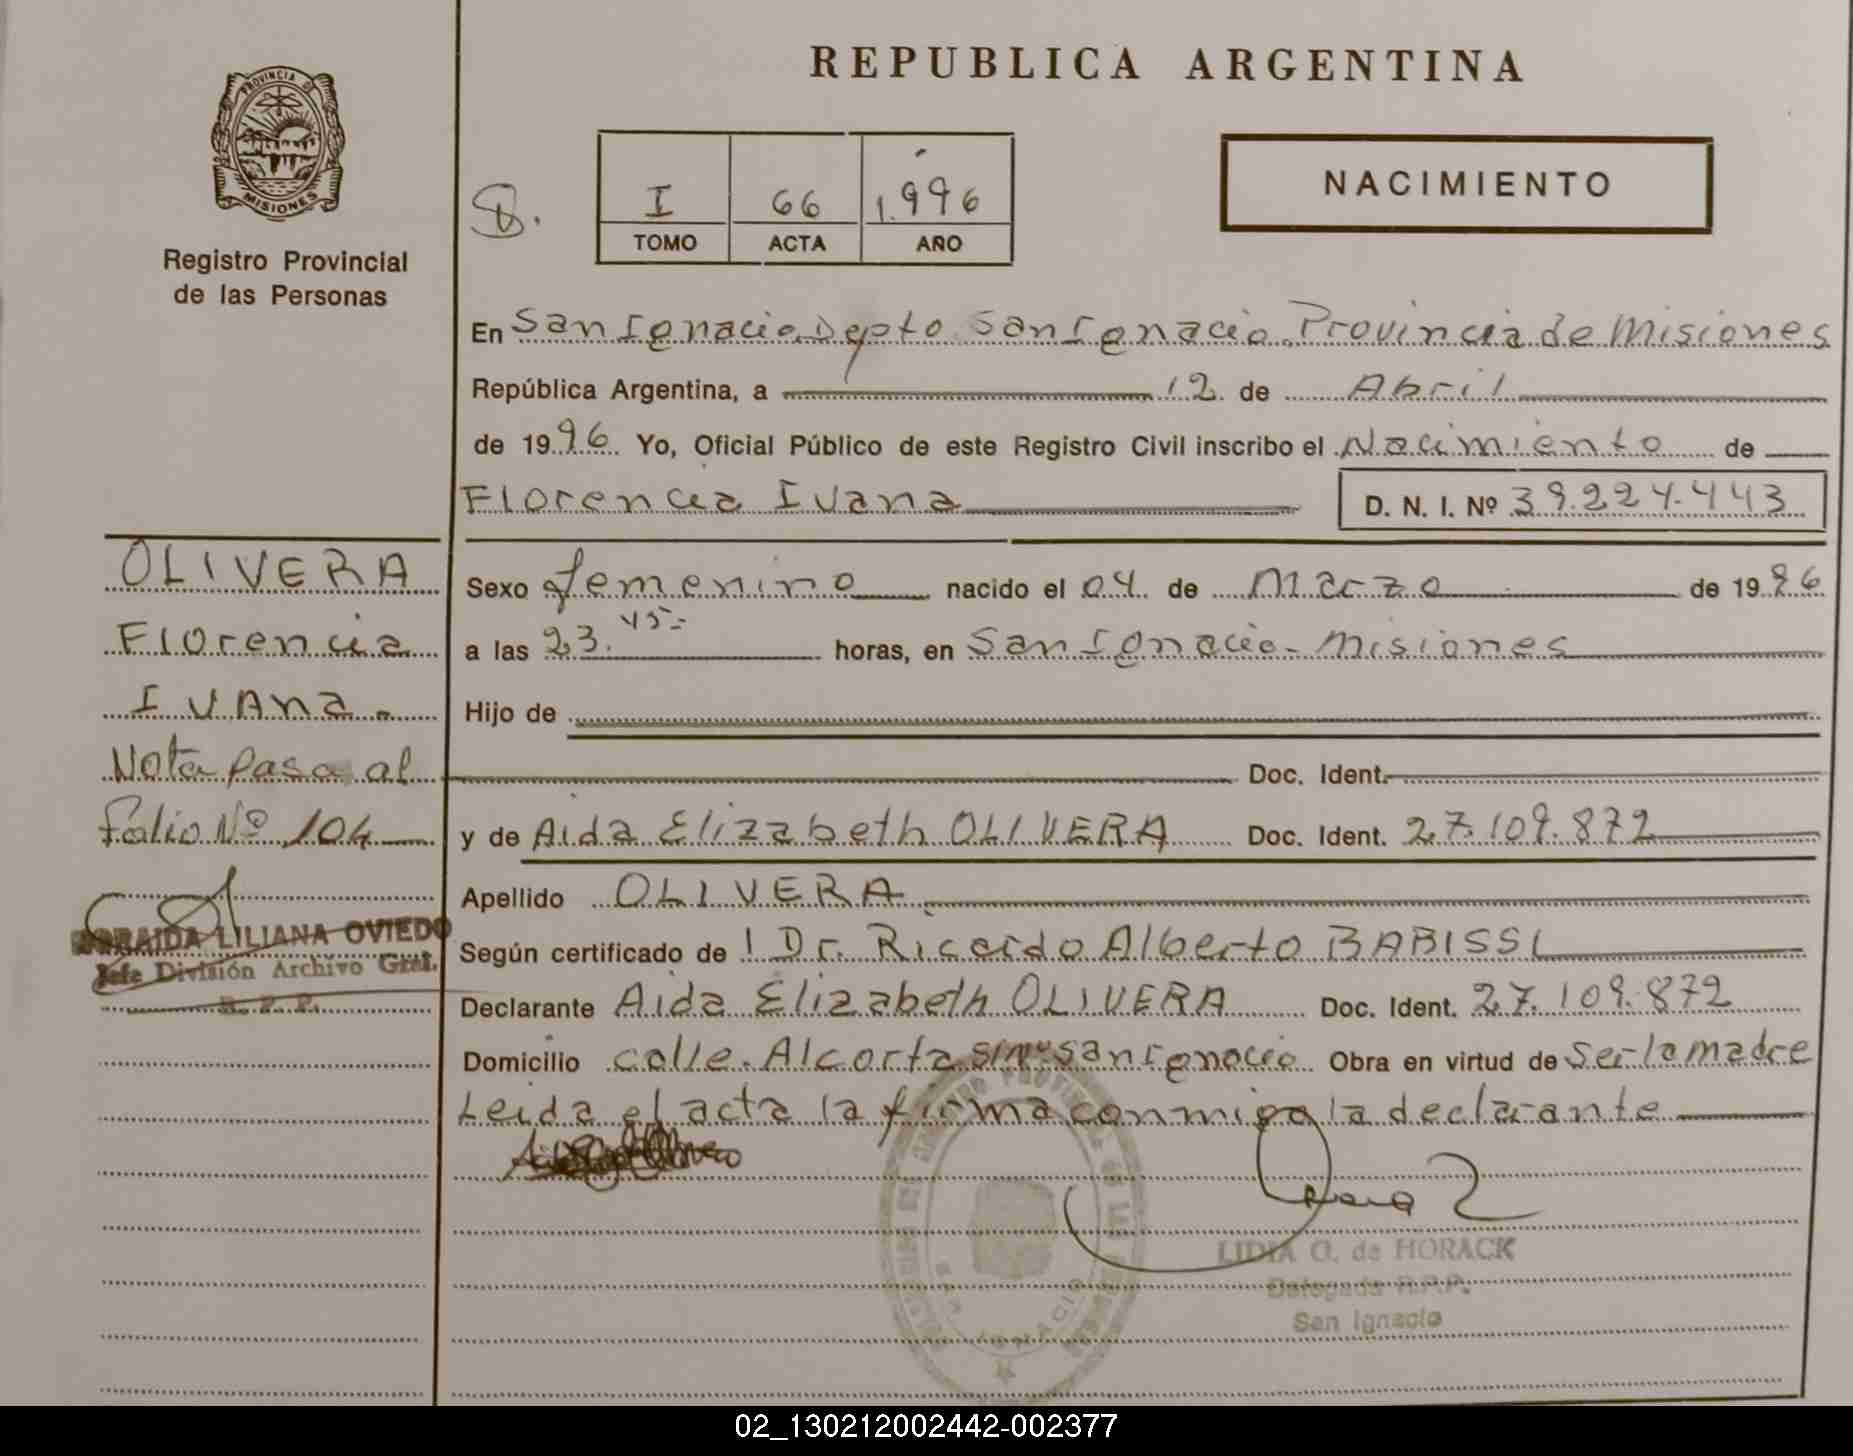 REPUBLICA ARGENTINA
PROVINCIA DE
MISIONES
Registro Provincial
de las Personas
I 66 1.996
TOMO ACTA AÑO
NACIMIENTO
En San Ignacio, Depto San Ignacio, Provincia de Misiones
República Argentina, a 12 de Abril
de 1996 Yo, Oficial Público de este Registro Civil inscribo el Nacimiento de
Florencia Ivana D. N. I. Nº 39.224.443
OLIVERA
Florencia
IVAna.
Nota Pasa al
Folio Nº 104
ZORAIDA LILIANA OVIEDO
Jefe División Archivo Gral.
R. P. P.
Sexo femenino nacido el 04 de Marzo de 1996
a las 23.45 horas, en San Ignacio - Misiones
Hijo de
Doc. Ident.
y de Aida Elizabeth OLIVERA Doc. Ident. 27.109.872
Apellido OLIVERA
Según certificado de Dr. Ricardo Alberto BABISSI
Declarante Aida Elizabeth OLIVERA Doc. Ident. 27.109.872
Domicilio calle Alcorta s/nº San Ignacio Obra en virtud de Ser la madre
Leida el acta la firma conmigo la declarante
LIDIA O. de HORACK
Delegada R.P.P.
San Ignacio
02_130212002442-002377